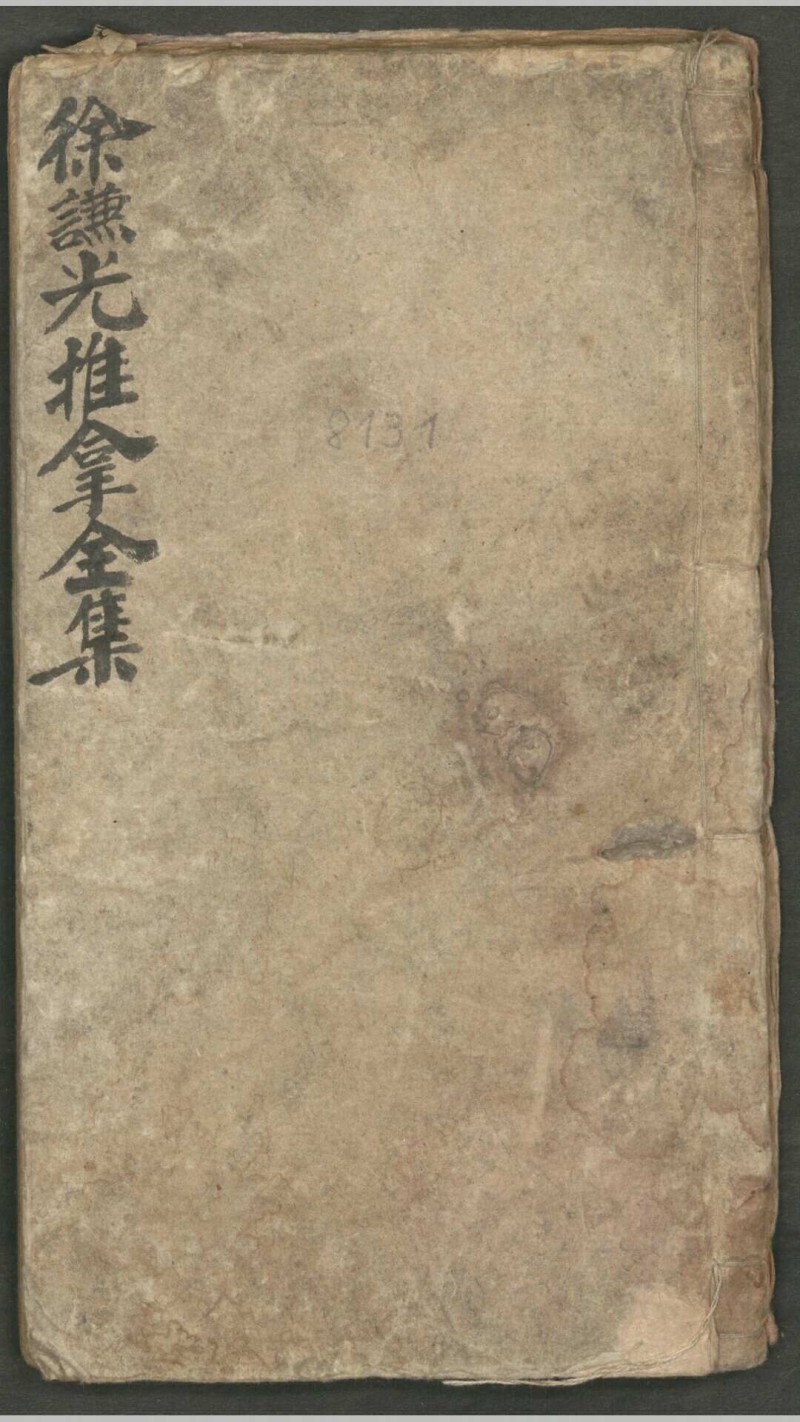 徐謙光推拿全集
8131